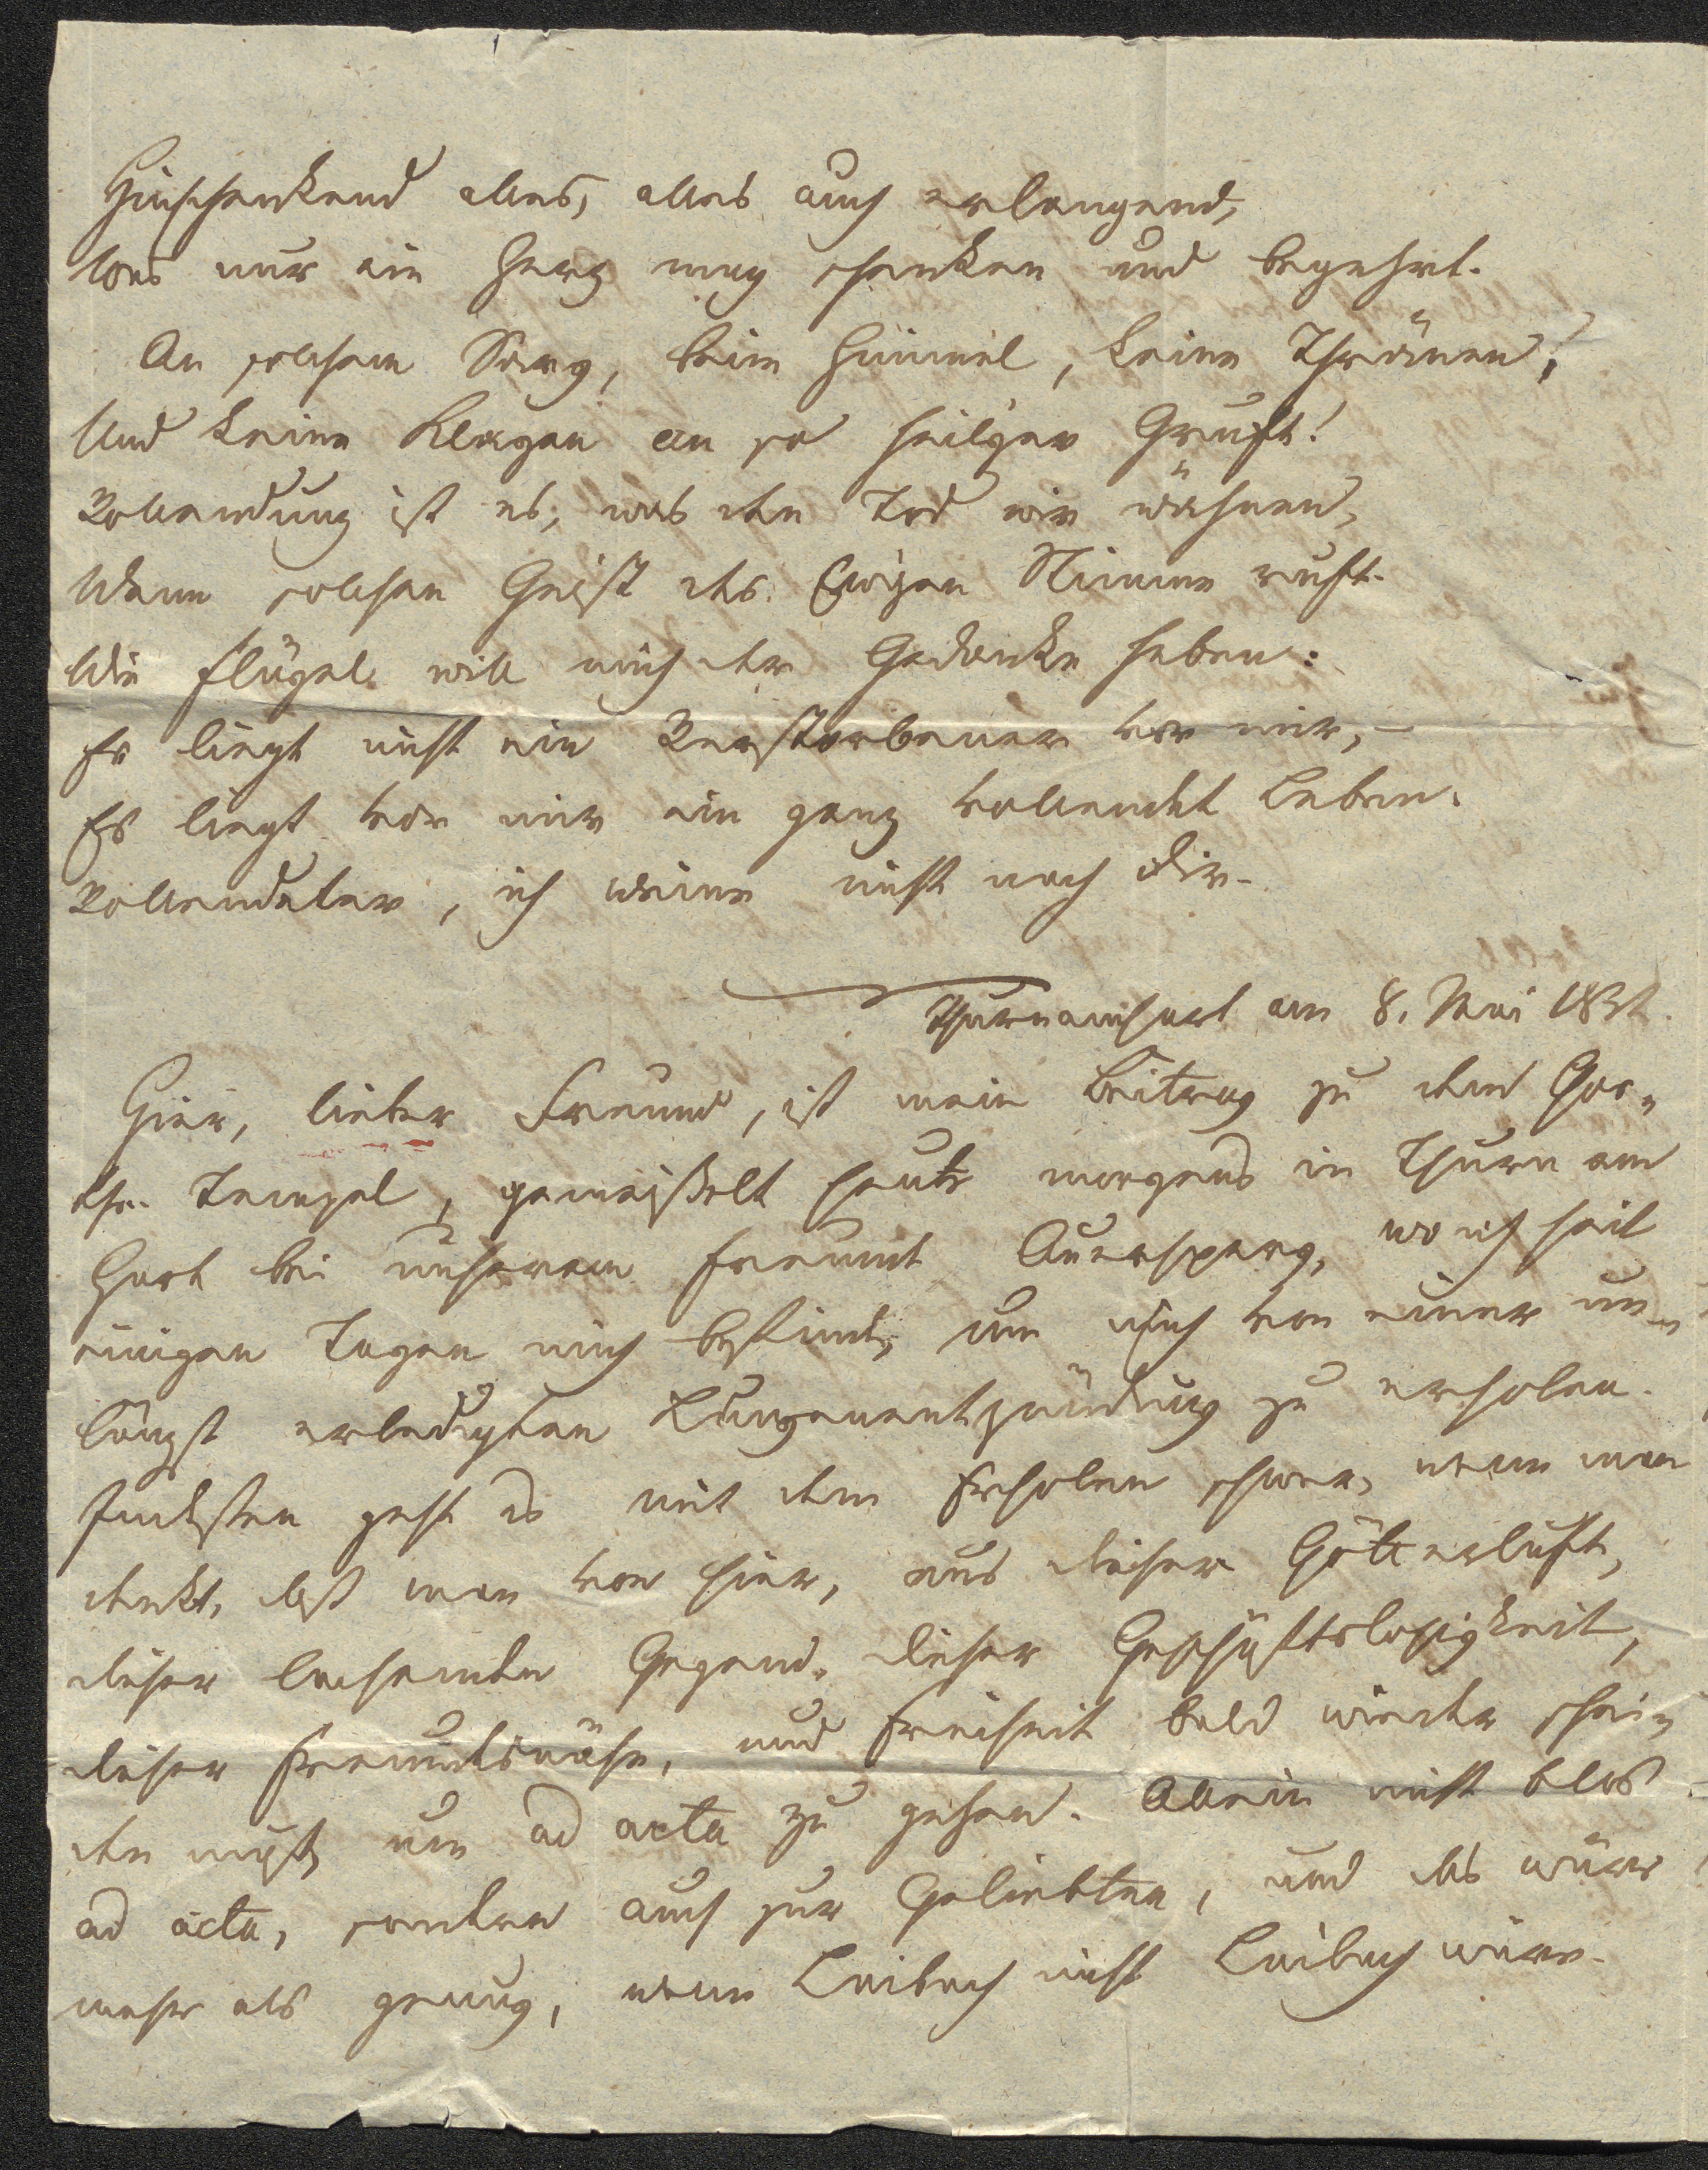 Hinschenkend alles, alles auch erlangend,
Was nur ein Herz mag schenken und begehrt.
An solchem Sarg, beim Himmel, keine Thränen!
Und keine Klagen an so heil'ger Gruft!
Vollendung ist es, was den Tod wir wähnen,
Wenn solchen Geist des Ew'gen Stimme ruft.
Wie Flügel will mich der Gedanke heben:
Es liegt nicht ein Verstorbener vor mir, –
Es liegt vor mir ein ganz vollendet Leben.
Vollendeter, ich weine nicht nach dir.
Thurnamhart am 8. Mai
Hier, lieber Freund, ist mein Beitrag zu dem Goe-
the-Tempel, gemeißelt heute morgens in Thurn am
Hart bei unserem Freunde Auersperg, wo ich seit
einigen Tagen mich befinde, um mich von einer un-
längst erledigten Lungenentzündung zu erholen.
Indessen geht es mit dem Erholen schwer, wenn man
denkt, daß man von hier, aus dieser Götterluft,
dieser lachenden Gegend, dieser Geschäftslosigkeit,
dieser Freundesnähe, und Freiheit bald wieder schei-
den muß, um ad acta zu gehen. Allein nicht blos
ad acta, sondern auch zur Geliebten, und das wäre
mehr als genug, wenn Laibach nicht Laibach wäre.